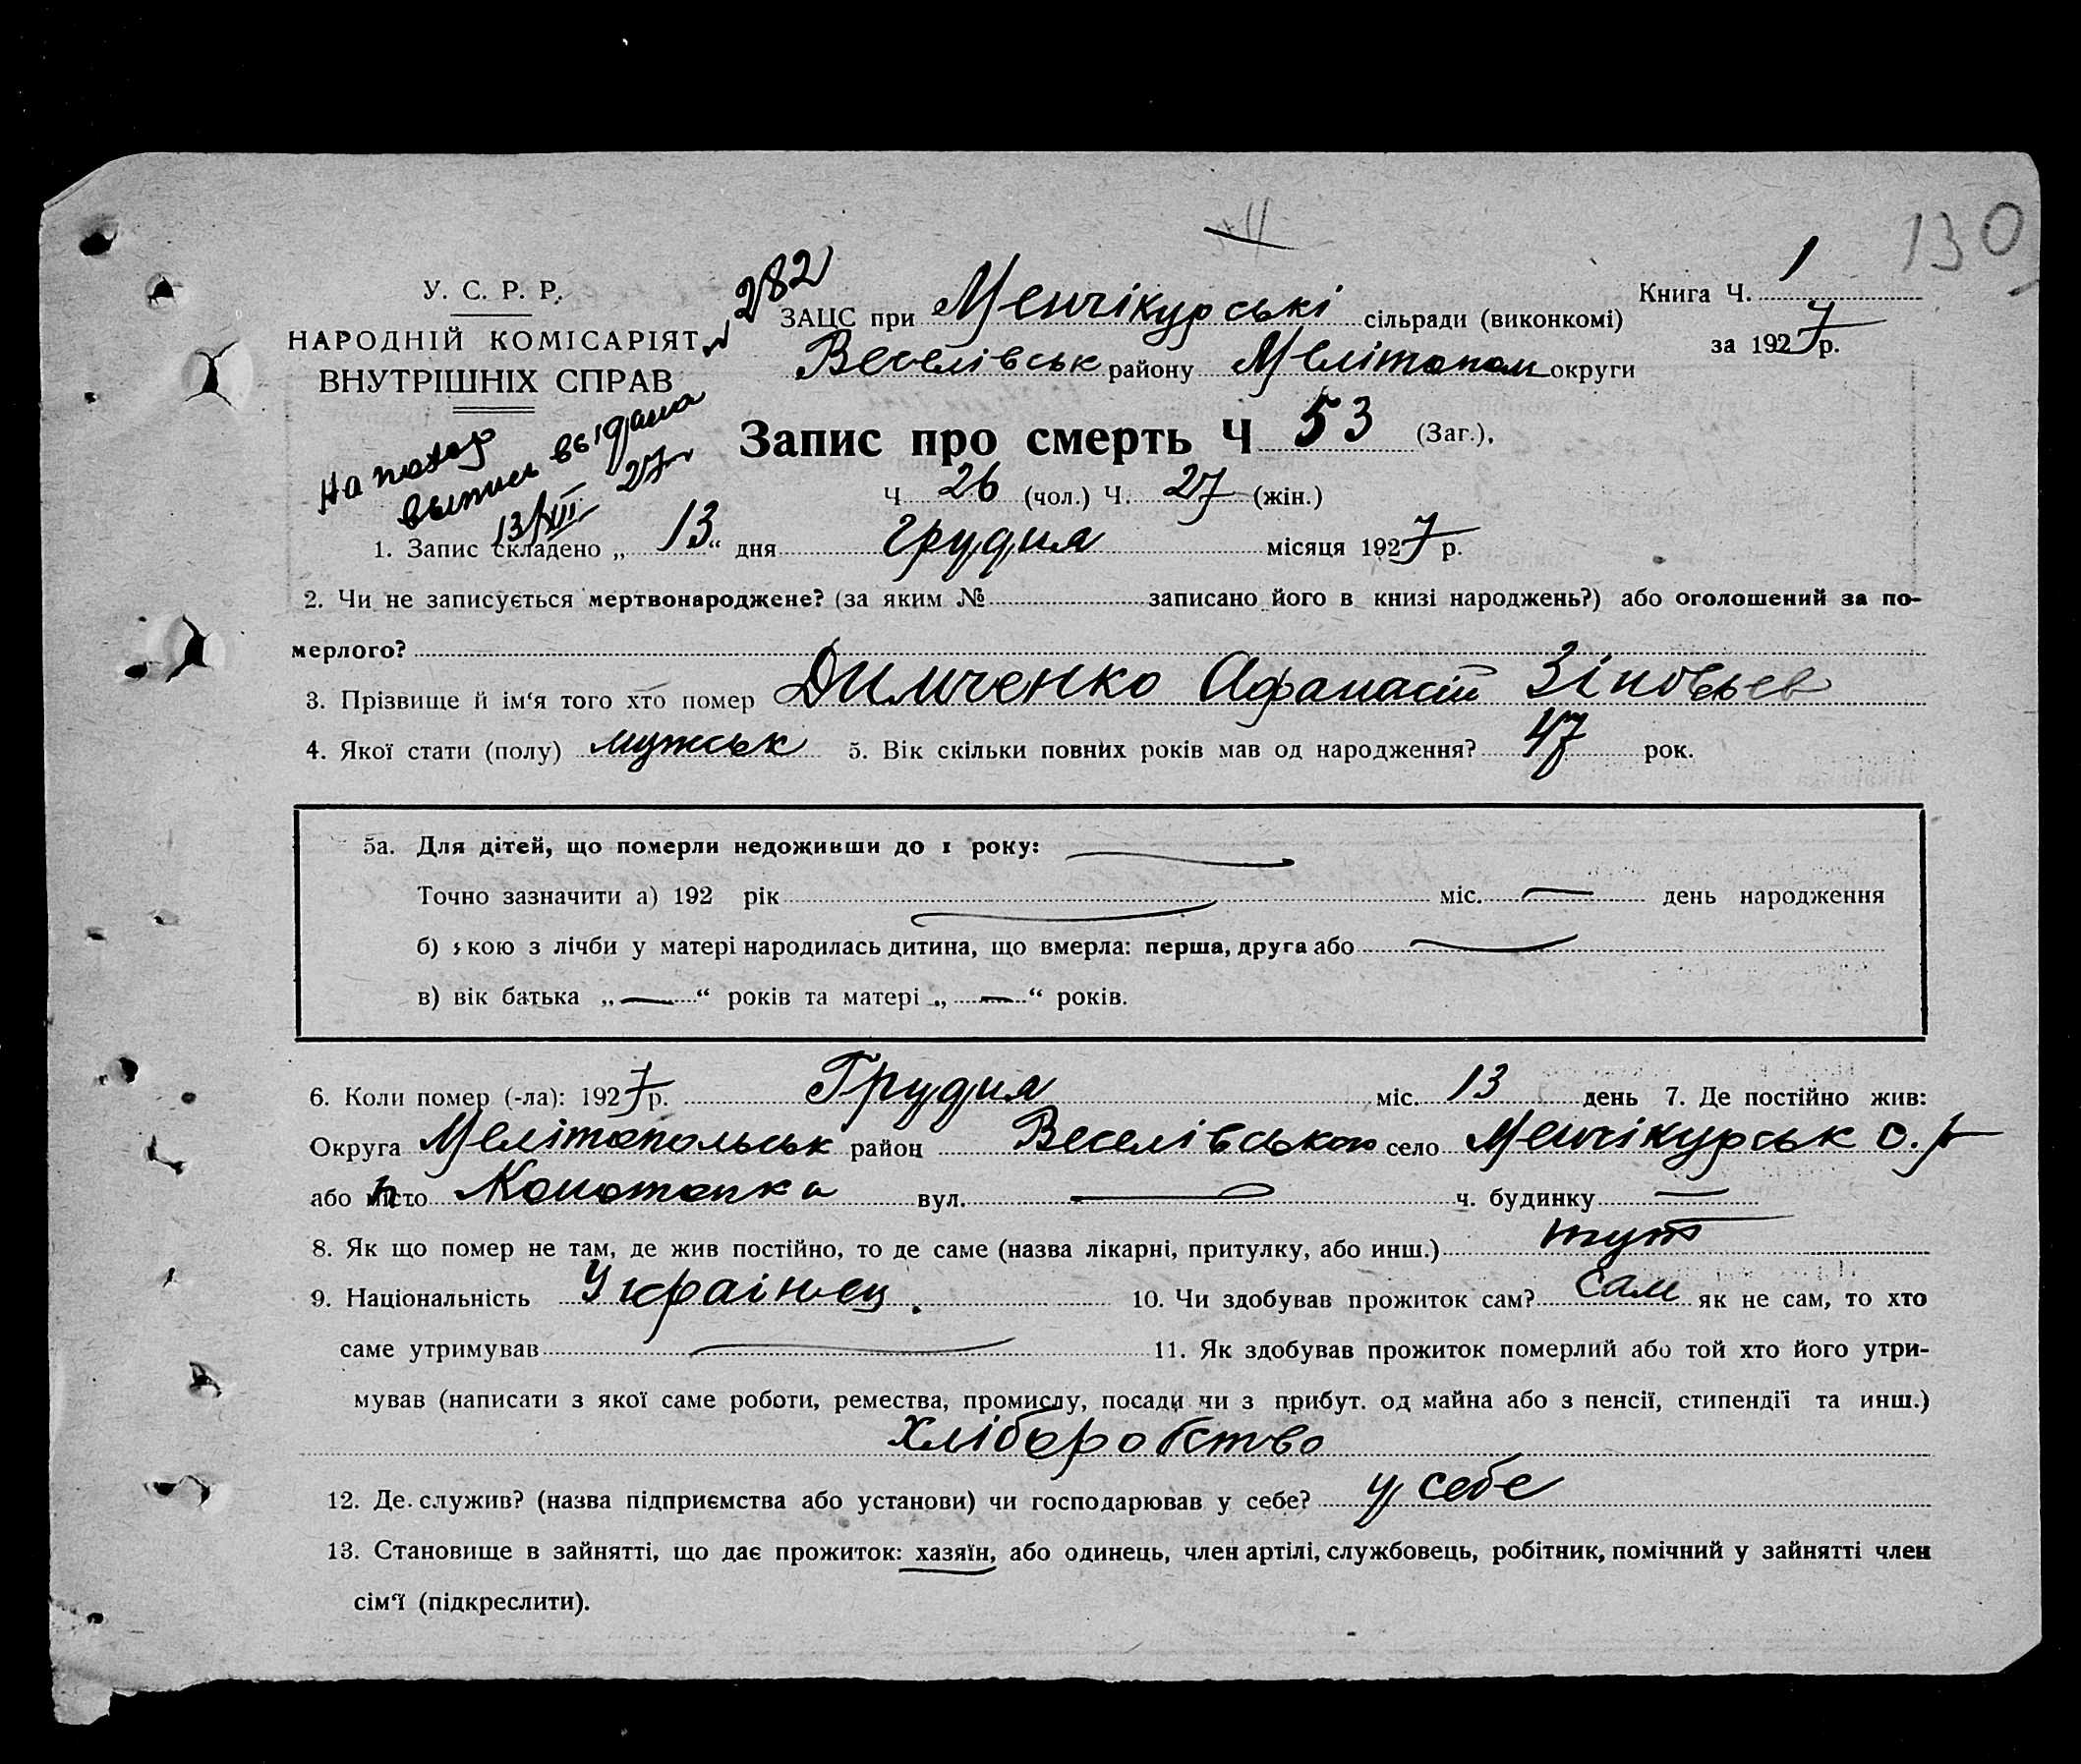 130
У. С. Р. Р.
НАРОДНІЙ КОМІСАРІЯТ
ВНУТРІШНІХ СПРАВ
№ 282
ЗАЦС при Менчікурські сільради (виконкомі)
Веселівськ району Мелітопол округи
Книга Ч. 1
за 1927 р.
На похор
выпись выдана
13/XII 27 г
Запис про смерть Ч 53 (Заг.).
Ч. 26 (чол.) Ч. 27 (жін.)
1. Запис складено „ 13 “ дня грудня місяця 1927 р.
2. Чи не записується мертвонароджене? (за яким № записано його в книзі народжень?) або оголошений за по-
мерлого?
3. Прізвище й ім‘я того хто помер Димченко Афанасій Зіновьев
4. Якої стати (полу) мужськ 5. Вік скільки повних років мав од народження? 47 рок.
5а. Для дітей, що померли недоживши до 1 року:
Точно зазначити а) 192 рік міс. день народження
б) якою з лічби у матері народилась дитина, що вмерла: перша, друга або
в) вік батька „ “ років та матері „ “ років.
6. Коли помер (-ла): 1927 р. Грудня міс. 13 день 7. Де постійно жив:
Округа Мелітопольськ район Веселівською село Менчікурськ с. р
або місто п Конотопка вул. ч. будинку
8. Як що помер не там, де жив постійно, то де саме (назва лікарні, притулку, або инш.) тут
9. Національність Українец. 10. Чи здобував прожиток сам? сам як не сам, то хто
саме утримував 11. Як здобував прожиток померлий або той хто його утри-
мував (написати з якої саме роботи, ремества, промислу, посади чи з прибут. од майна або з пенсії, стипендії та инш.)
Хліборобство
12. Де служив? (назва підприємства або установи) чи господарював у себе? у себе
13. Становище в зайнятті, що дає прожиток: хазяїн, або одинець, член артілі, службовець, робітник, помічний у зайнятті член
сім‘ї (підкреслити).